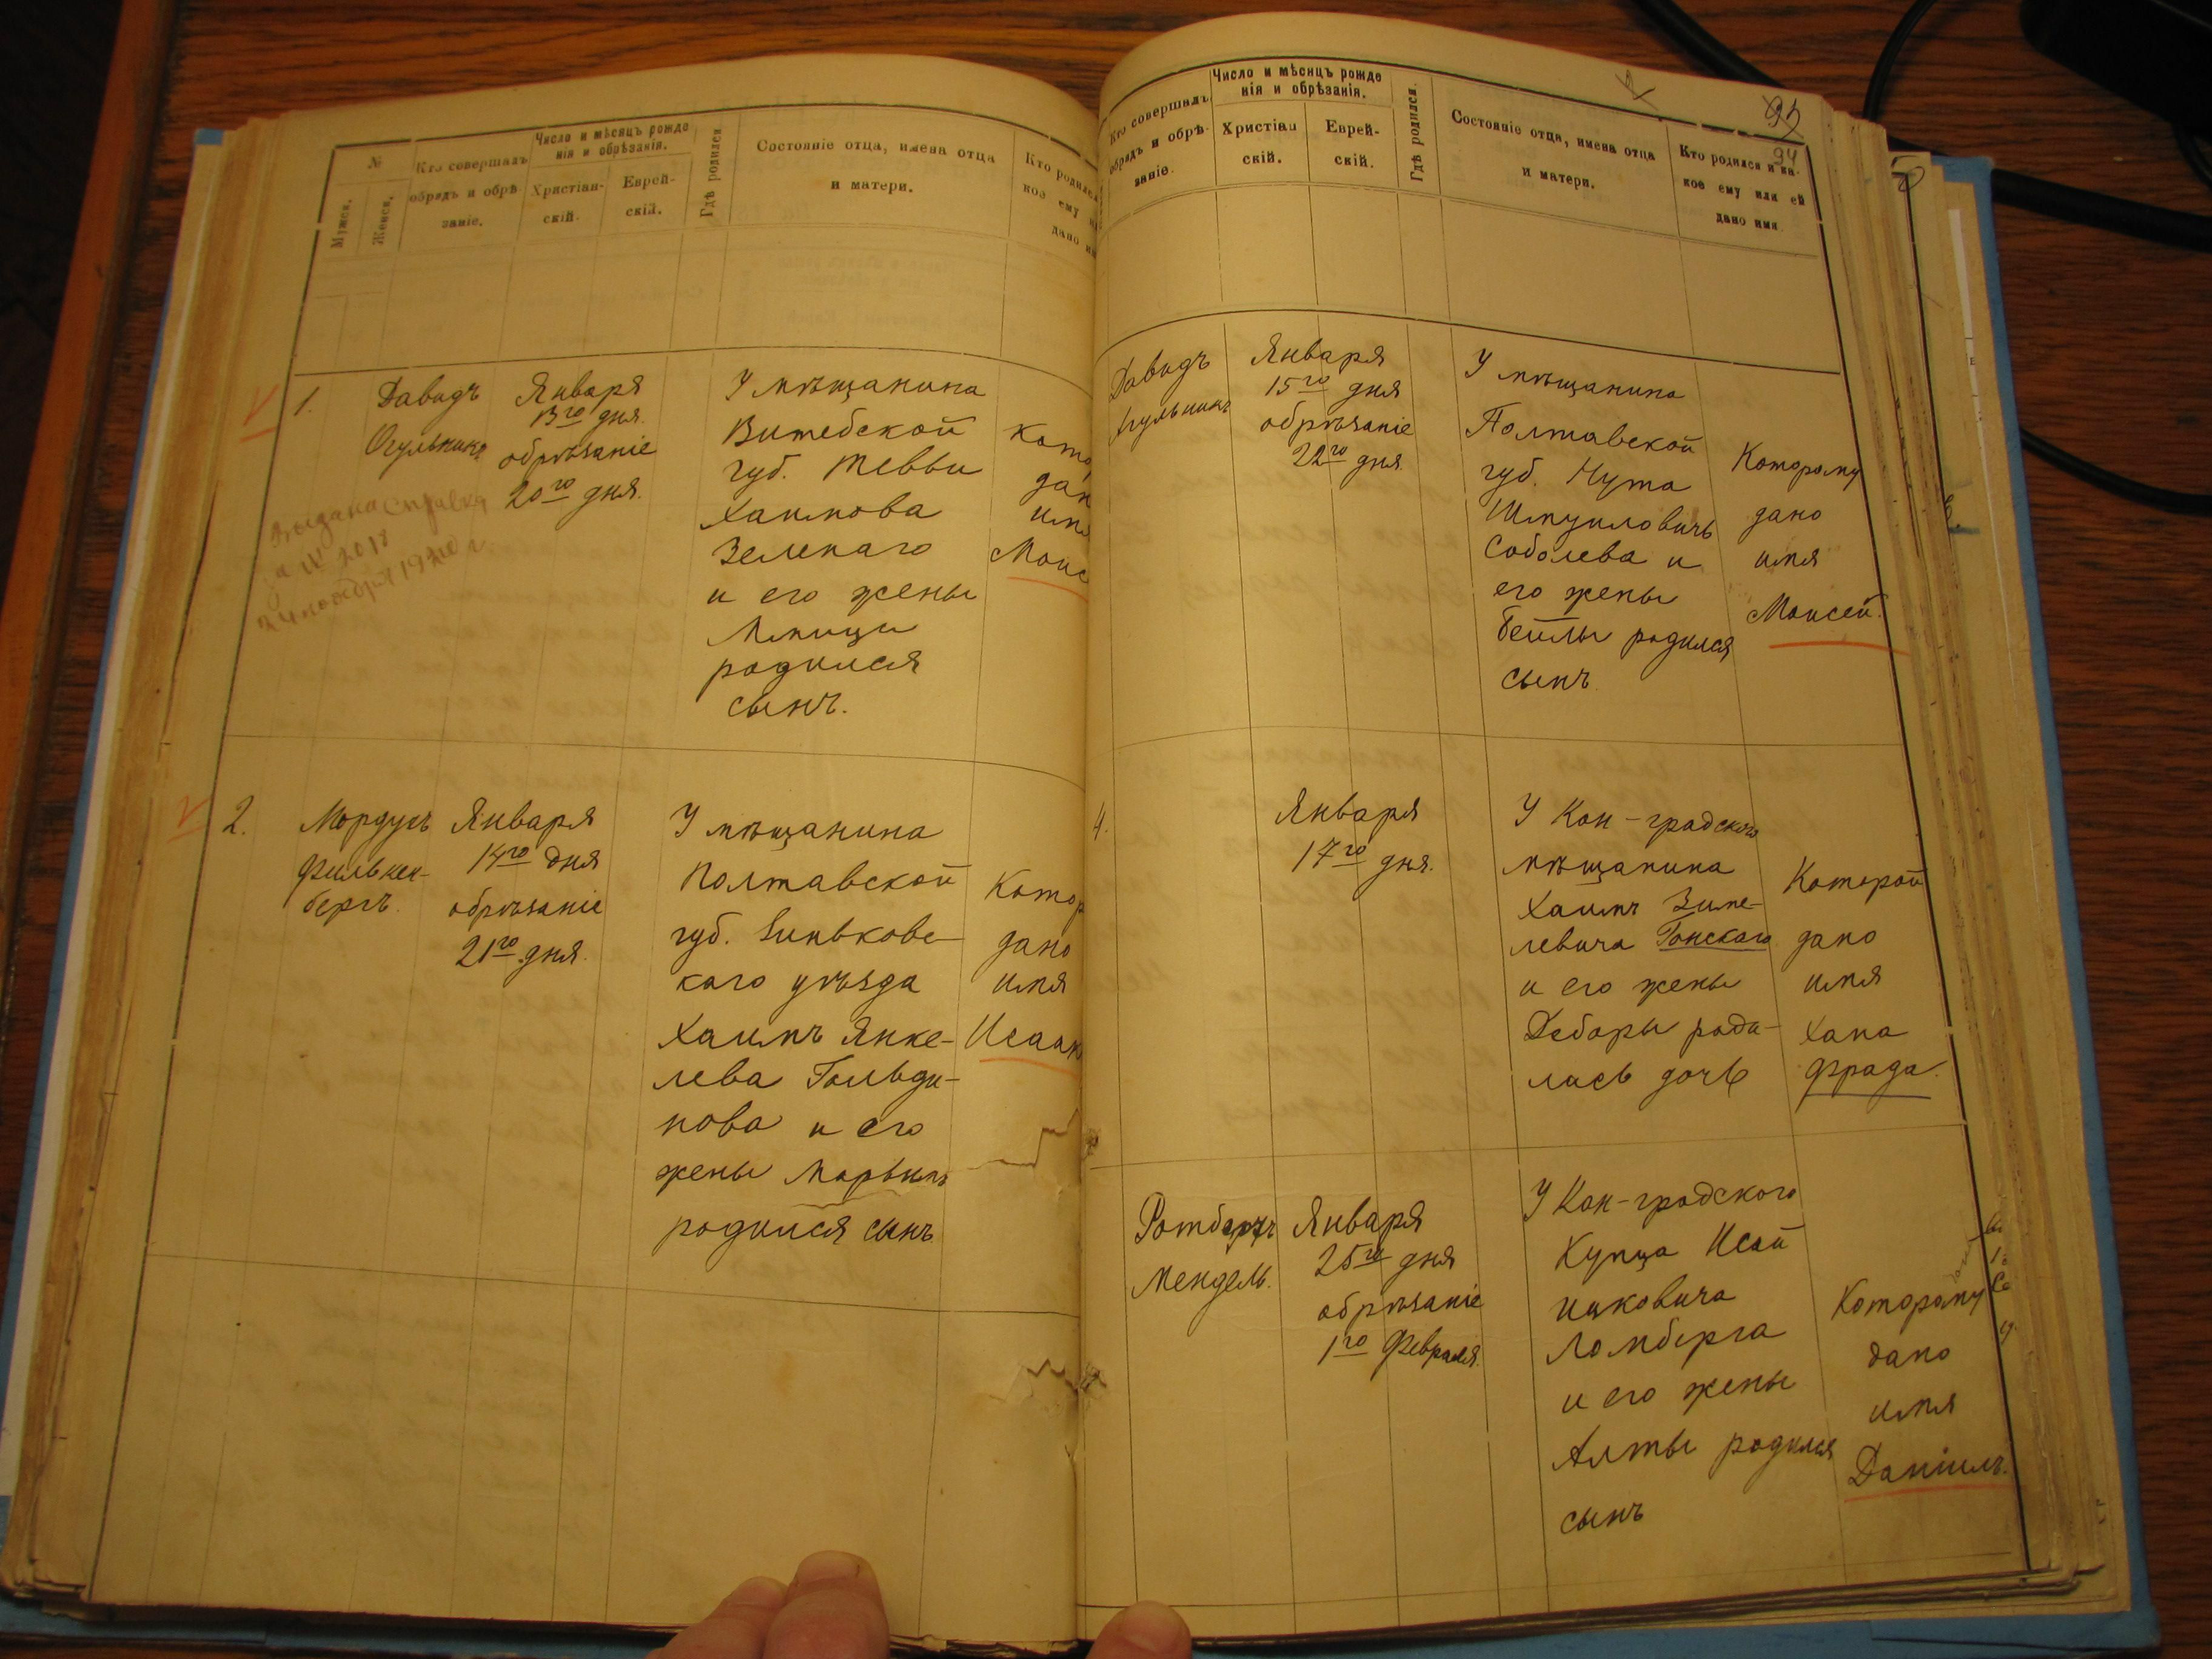 №
Мужск.
Женск.
Кто совершалъ
обрядъ и обрѣ-
заніе.
Число и мѣсяцъ рожде
нія и обрѣзанія.
Христіан-
скій.
Еврей-
скій.
Гдѣ родился
Состояніе отца, имена отца
и матери.
Кто родился
кое ему
дано
1.
Давидъ
Января
13го дня.
обрѣзаніе
20го дня.
У мѣщанина
Витебской
губ. Тевьи
Хаимова
Зеленаго
и его жены
родился
сынъ.
Кото
дан
имя
Моис
Выдана справка
за № 2018
2.
Мордухъ
Филькен-
бергъ.
Января
14го дня
обрѣзаніе
21го дня.
У мѣщанина
Полтавской
губ. Зиньковс-
каго уѣзда
Хаимъ Янке-
лева Гольди-
нова и его
жены
родился сынъ
Котор
дано
имя
Исаак
93
94
Кто совершалъ
обрядъ и обрѣ-
заніе.
Число и мѣсяцъ рожде
нія и обрѣзанія.
Христіан
скій.
Еврей-
скій.
Гдѣ родился.
Состояніе отца, имена отца
и матери.
Кто родился и ка-
кое ему или ей
дано имя.
Давидъ
Января
15го дня
обрѣзаніе
22го дня.
У мѣщанина
Полтавской
губ. Нута
Шмуиловичъ
Соболева и
его жены
Бейлы родился
сынъ.
Которому
дано
имя
Моисей.
4.
Января
17го дня.
У Кон-градского
мѣщанина
Хаимъ Зиме-
левича Гонского
и его жены
Деборы роди-
лась дочь
Которой
дано
имя
Хана
Фрада.
Ротбергъ
Мендель.
Января
25го дня
обрѣзаніе
1го Февраля.
У Кон-градского
Купца Исай
Ицковича
Ломберга
и его жены
Алты родился
сынъ
Которому
дано
имя
Даніилъ.